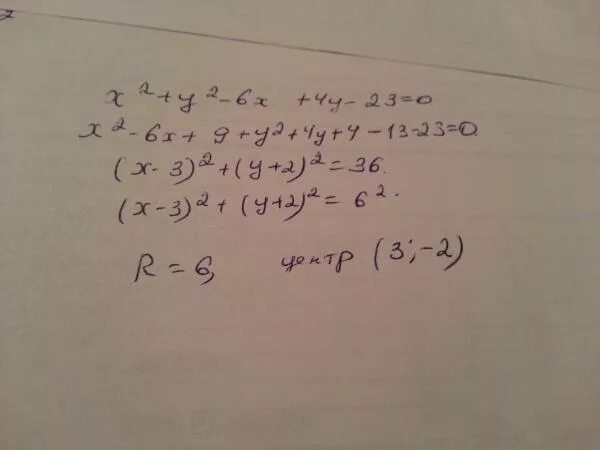 x² + y² - 6x + 4y - 23 = 0
x² - 6x + 9 + y² + 4y + 4 - 13 - 23 = 0
(x - 3)² + (y + 2)² = 36.
(x - 3)² + (y + 2)² = 6².
R = 6, центр (3; -2)